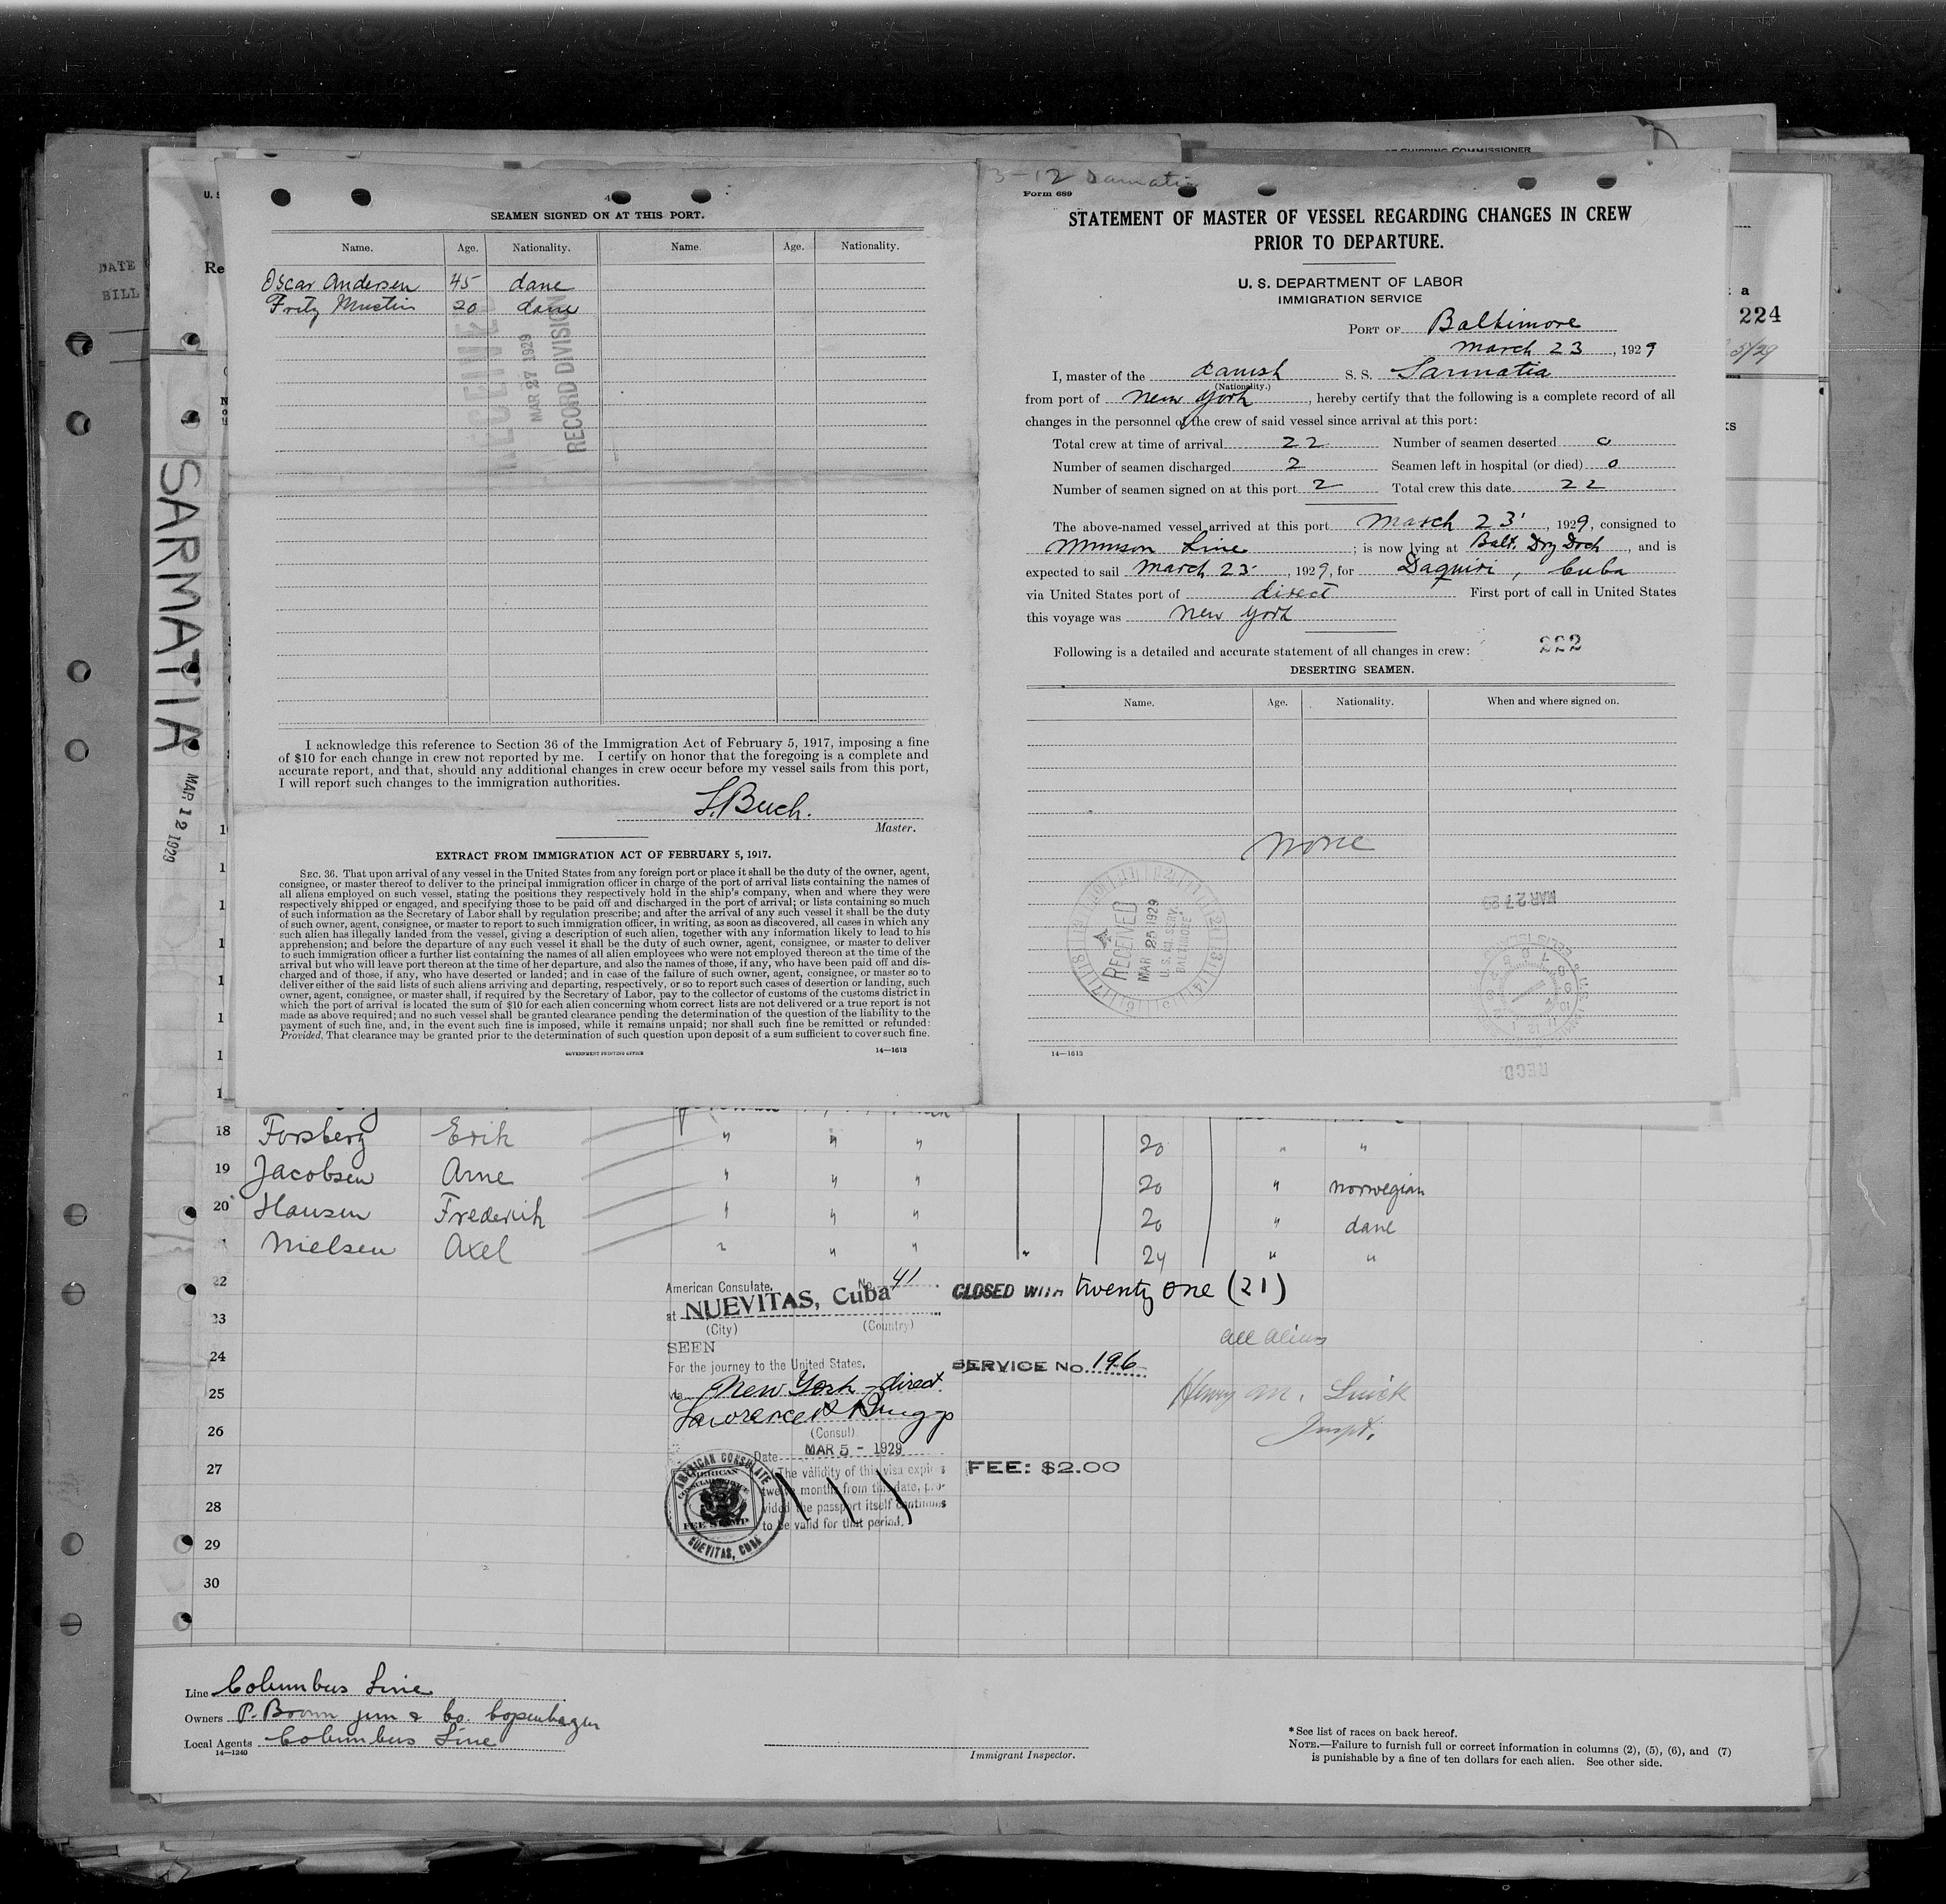 OF SHIPPING COMMISSIONER
DATE
BILL
U. S
Re
a
224
5/29
KS
SARMATIA
MAR 12 1929
4
SEAMEN SIGNED ON AT THIS PORT.
Name. Age. Nationality. Name. Age. Nationality.
Oscar Andersen 45 dane
Fritz 20 dane
RECEIVED
MAR 27 1929
RECORD DIVISION
I acknowledge this reference to Section 36 of the Immigration Act of February 5, 1917, imposing a fine
of $10 for each change in crew not reported by me. I certify on honor that the foregoing is a complete and
accurate report, and that, should any additional changes in crew occur before my vessel sails from this port,
I will report such changes to the immigration authorities.
Buch.
Master.
EXTRACT FROM IMMIGRATION ACT OF FEBRUARY 5, 1917.
SEC. 36. That upon arrival of any vessel in the United States from any foreign port or place it shall be the duty of the owner, agent,
consignee, or master thereof to deliver to the principal immigration officer in charge of the port of arrival lists containing the names of
all aliens employed on such vessel, stating the positions they respectively hold in the ship's company, when and where they were
respectively shipped or engaged, and specifying those to be paid off and discharged in the port of arrival; or lists containing so much
of such information as the Secretary of Labor shall by regulation prescribe; and after the arrival of any such vessel it shall be the duty
of such owner, agent, consignee, or master to report to such immigration officer, in writing, as soon as discovered, all cases in which any
such alien has illegally landed from the vessel, giving a description of such alien, together with any information likely to lead to his
apprehension; and before the departure of any such vessel it shall be the duty of such owner, agent, consignee, or master to deliver
to such immigration officer a further list containing the names of all alien employees who were not employed thereon at the time of the
arrival but who will leave port thereon at the time of her departure, and also the names of those, if any, who have been paid off and dis-
charged and of those, if any, who have deserted or landed; and in case of the failure of such owner, agent, consignee, or master so to
deliver either of the said lists of such aliens arriving and departing, respectively, or so to report such cases of desertion or landing, such
owner, agent, consignee, or master shall, if required by the Secretary of Labor, pay to the collector of customs of the customs district in
which the port of arrival is located the sum of $10 for each alien concerning whom correct lists are not delivered or a true report is not
made as above required; and no such vessel shall be granted clearance pending the determination of the question of the liability to the
payment of such fine, and, in the event such fine is imposed, while it remains unpaid; nor shall such fine be remitted or refunded:
Provided, That clearance may be granted prior to the determination of such question upon deposit of a sum sufficient to cover such fine.
GOVERNMENT PRINTING OFFICE 14—1613
3-12 Sarmatia
Form 689
STATEMENT OF MASTER OF VESSEL REGARDING CHANGES IN CREW
PRIOR TO DEPARTURE.
U. S. DEPARTMENT OF LABOR
IMMIGRATION SERVICE
PORT OF Baltimore
March 23, 1929
I, master of the danish S. S. Sarmatia
(Nationality.)
from port of New York, hereby certify that the following is a complete record of all
changes in the personnel of the crew of said vessel since arrival at this port:
Total crew at time of arrival 22 Number of seamen deserted 0
Number of seamen discharged 2 Seamen left in hospital (or died) 0
Number of seamen signed on at this port 2 Total crew this date 22
The above-named vessel arrived at this port March 23, 1929, consigned to
Munson Line; is now lying at Balt. Dry Dock, and is
expected to sail March 23, 1929, for Daquiri, Cuba
via United States port of direct First port of call in United States
this voyage was New York
Following is a detailed and accurate statement of all changes in crew: 222
DESERTING SEAMEN.
Name. Age. Nationality. When and where signed on.
None
RECEIVED
MAR 25 1929
U. S. IMM. SERV.
BALTIMORE
MAR 27 29
RECD
14—1613
18 Forsberg Erik " " " 20 " "
19 Jacobsen Arne " " " 20 " norwegian
20 Hansen Frederick " " " 20 " dane
Nielsen Axel " " " " 24 " "
22
23
24
25
26
27
28
29
30
American Consulate, No. 41
at NUEVITAS, Cuba
(City) (Country)
SEEN
For the journey to the United States,
via New York - direct
Lawrence Briggs
(Consul)
Date MAR 5 - 1929
(The validity of this visa expires
twelve months from this date, pro-
vided the passport itself continues
to be valid for that period.
AMERICAN CONSULATE
AMERICAN
CONSULAR SERVICE
FEE STAMP
NUEVITAS, CUBA
CLOSED WITH twenty one (21)
all aliens
SERVICE No. 196
Henry M.
Inspt.
FEE: $2.00
Line Columbus Line
Owners P. Brown jun & Co. Copenhagen
Local Agents Columbus Line
14—1240
Immigrant Inspector.
* See list of races on back hereof.
NOTE.—Failure to furnish full or correct information in columns (2), (5), (6), and (7)
is punishable by a fine of ten dollars for each alien. See other side.